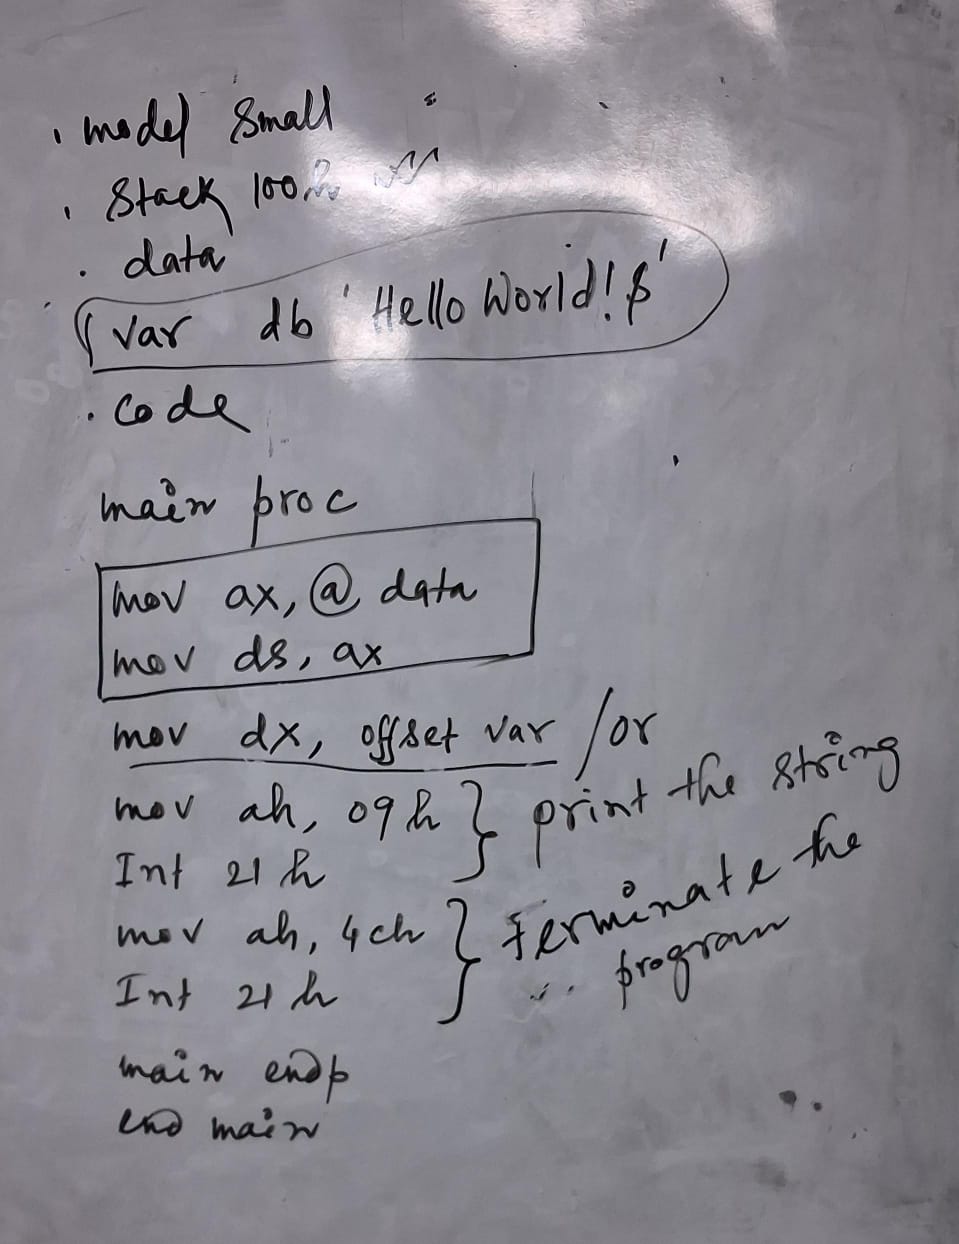 .model small
.stack 100h
.data
var db 'Hello World!$'
.code
main proc
mov ax, @data
mov ds, ax
mov dx, offset var /or
mov ah, 09h } print the string
Int 21h
mov ah, 4ch } terminate the
Int 21h program
main endp
end main